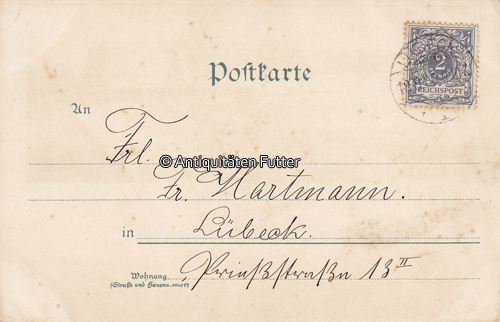 Postkarte
2
REICHSPOST
An
Frl.
© Antiquitäten Futter
Fr. Hartmann.
in Lübeck.
Wohnung
(Straße und Hausnummer)
13 II